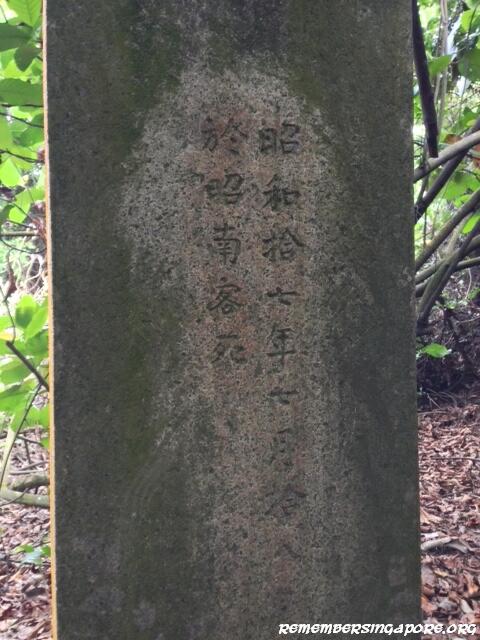 昭和拾七年七月拾八
於昭南客死
REMEMBERSINGAPORE.ORG